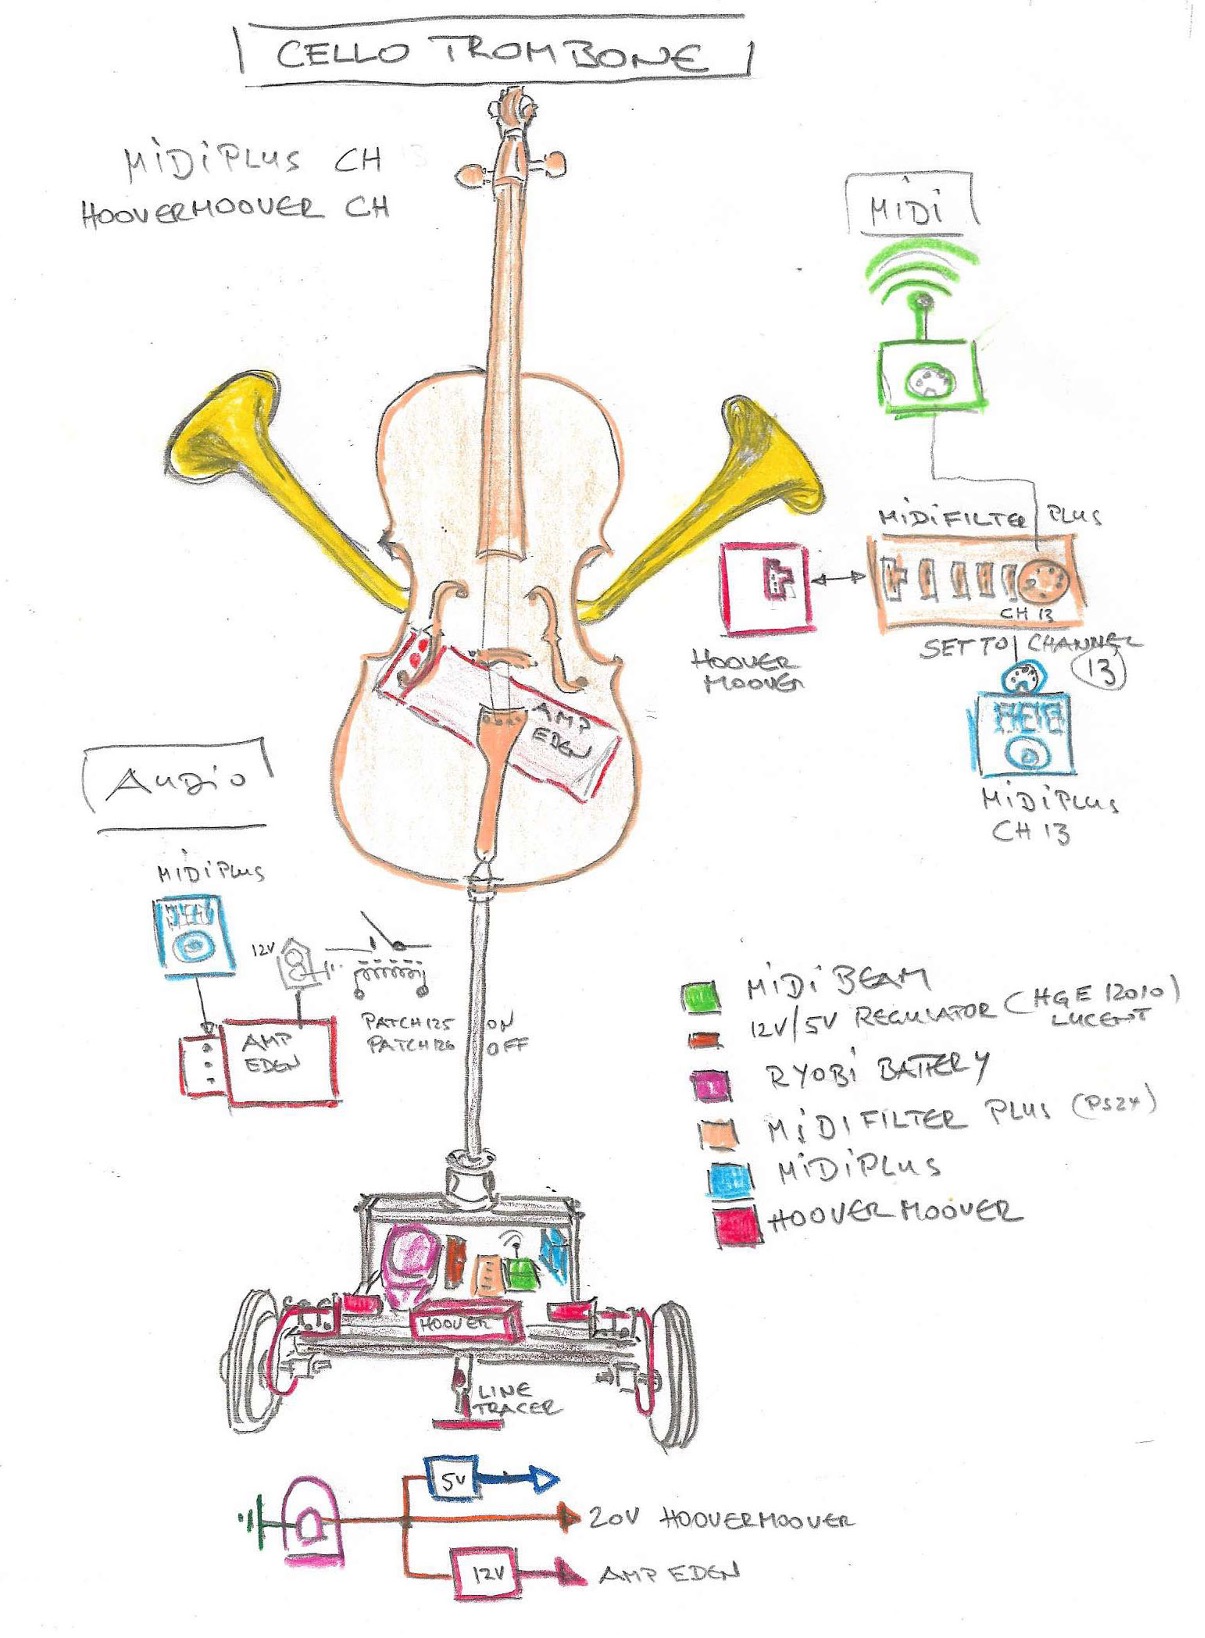 CELLO TROMBONE
MiDiPLUS CH
HOOVERMOOVER CH
MiDi
MiDiFILTER PLUS
CH 13
SET TO CHANNEL
13
HOOVER
MOOVER
MiDiPLUS
CH 13
AMP
EDEN
AUDiO
MiDiPLUS
12V
AMP
EDEN
PATCH 125 ON
PATCH 126 OFF
MiDi BEAM
12V/5V REGULATOR (HGE 12010)
LUCENT
RYOBi BATTERY
MiDiFILTER PLUS (PS24)
MiDiPLUS
HOOVERMOOVER
HOOVER
LINE
TRACER
5V
20V HOOVERMOOVER
12V
AMP EDEN